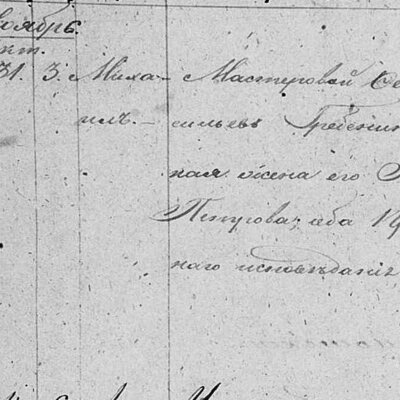 оябрь
окт.
31. 3. Миха- Мастеровой
илъ. - сильевъ Гребенщ
ная жена его
Петрова; оба
наго исповѣданія